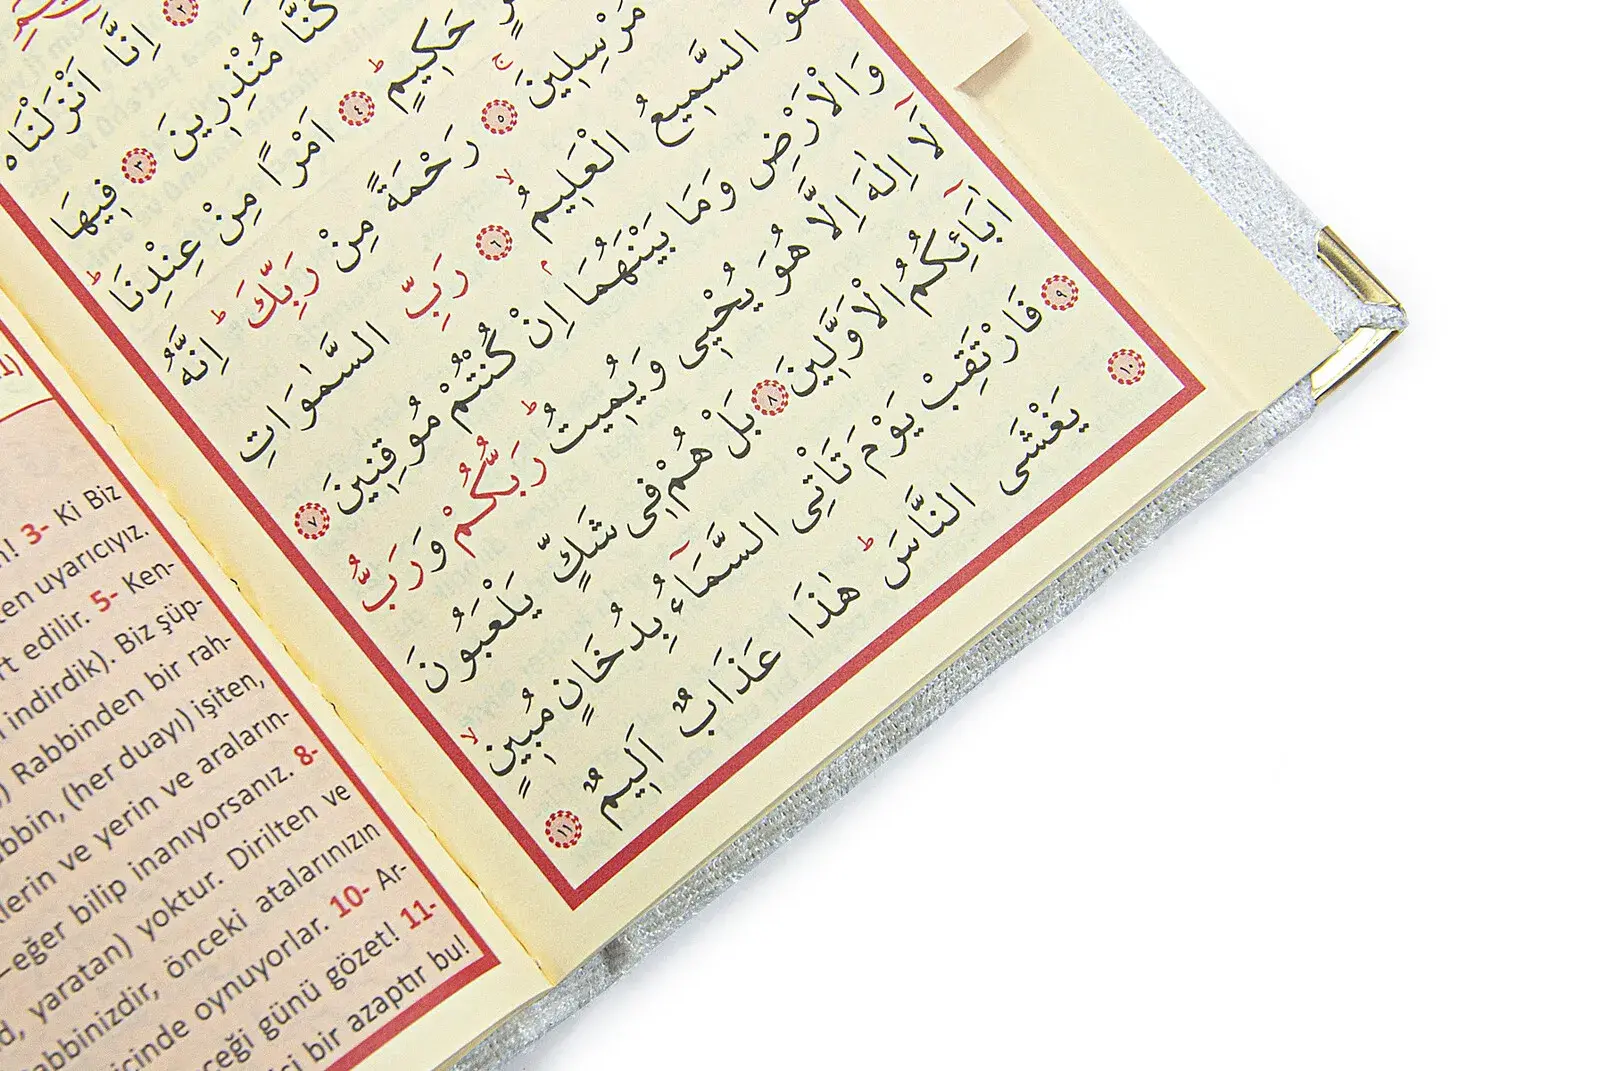 ٢ اِنَّٓا اَنْزَلْنَاهُ
كُنَّا مُنْذِرِينَ ٣ فِيهَا
حَكِيمٍ ٤ اَمْرًا مِنْ عِنْدِنَا
مُرْسِلِينَ ٥ رَحْمَةً مِنْ رَبِّكَ اِنَّهُ
هُوَ السَّمِيعُ الْعَلِيمُ ٦ رَبِّ السَّمٰوَاتِ
وَالْاَرْضِ وَمَا بَيْنَهُمَا اِنْ كُنْتُمْ مُوقِنِينَ ٧
لَٓا اِلٰهَ اِلَّا هُوَ يُحْيِى وَيُمِيتُ رَبُّكُمْ وَرَبُّ
اٰبَٓائِكُمُ الْاَوَّلِينَ ٨ بَلْ هُمْ فِى شَكٍّ يَلْعَبُونَ
٩ فَارْتَقِبْ يَوْمَ تَاْتِى السَّمَٓاءُ بِدُخَانٍ مُبِينٍ
١٠ يَغْشَى النَّاسَ هٰذَا عَذَابٌ اَلِيمٌ ١١
3- Ki Biz
uyarıcıyız.
edilir. 5- Ken-
indirdik). Biz şüp-
Rabbinden bir rah-
(her duayı) işiten,
ve yerin ve araların-
–eğer bilip inanıyorsanız. 8-
yaratan) yoktur. Dirilten ve
önceki atalarınızın
oynuyorlar. 10- Ar-
günü gözet! 11-
bir azaptır bu!